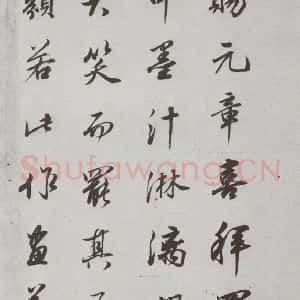 賜元章喜拜
墨汁淋漓
大笑而罷其
類若此作畫
Shufawang.CN